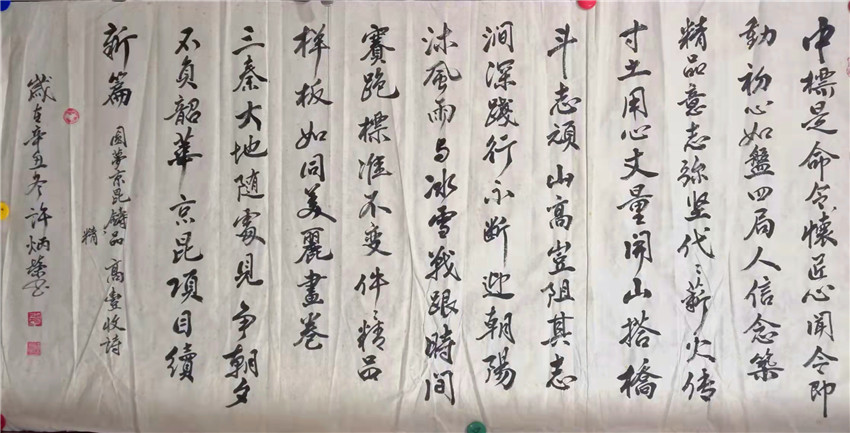 中標是命令懷匠心聞令即
動初心如盤四局人信念築
精品意志弥坚代々薪火傳
寸土用心丈量開山搭橋
斗志頑山高豈阻其志
澗深踐行不断迎朝陽
沐風雨与冰雪戰跟時間
賽跑標准不變件々精品
样板如同美麗畫卷
三秦大地随處見争朝夕
不負韶華京昆項目續
新篇
圆夢京昆鑄品 高豊收詩
精
歲在辛丑冬许炳榮书